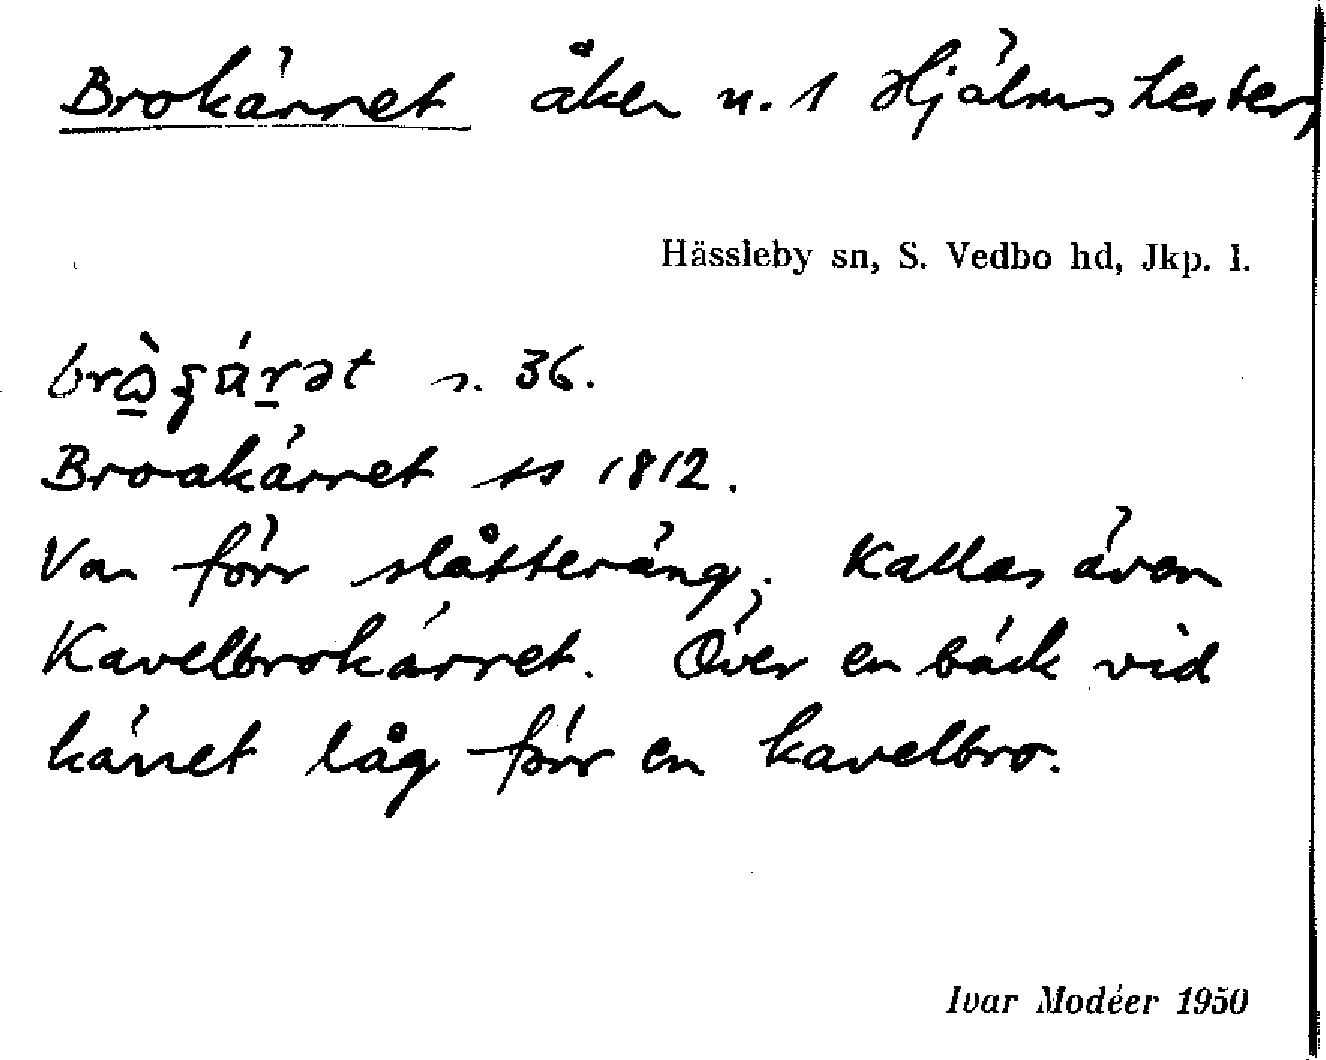 Brokärret åker n. 1 Hjälmshester,
Hässleby sn, S. Vedbo hd, Jkp. l.
s. 36.
Broakärret ss 1812.
Var förr slåtteräng. Kallas även
Kavelbrokärret. Över en bäck vid
kärret låg förr en kavelbro.
Ivar Modéer 1950